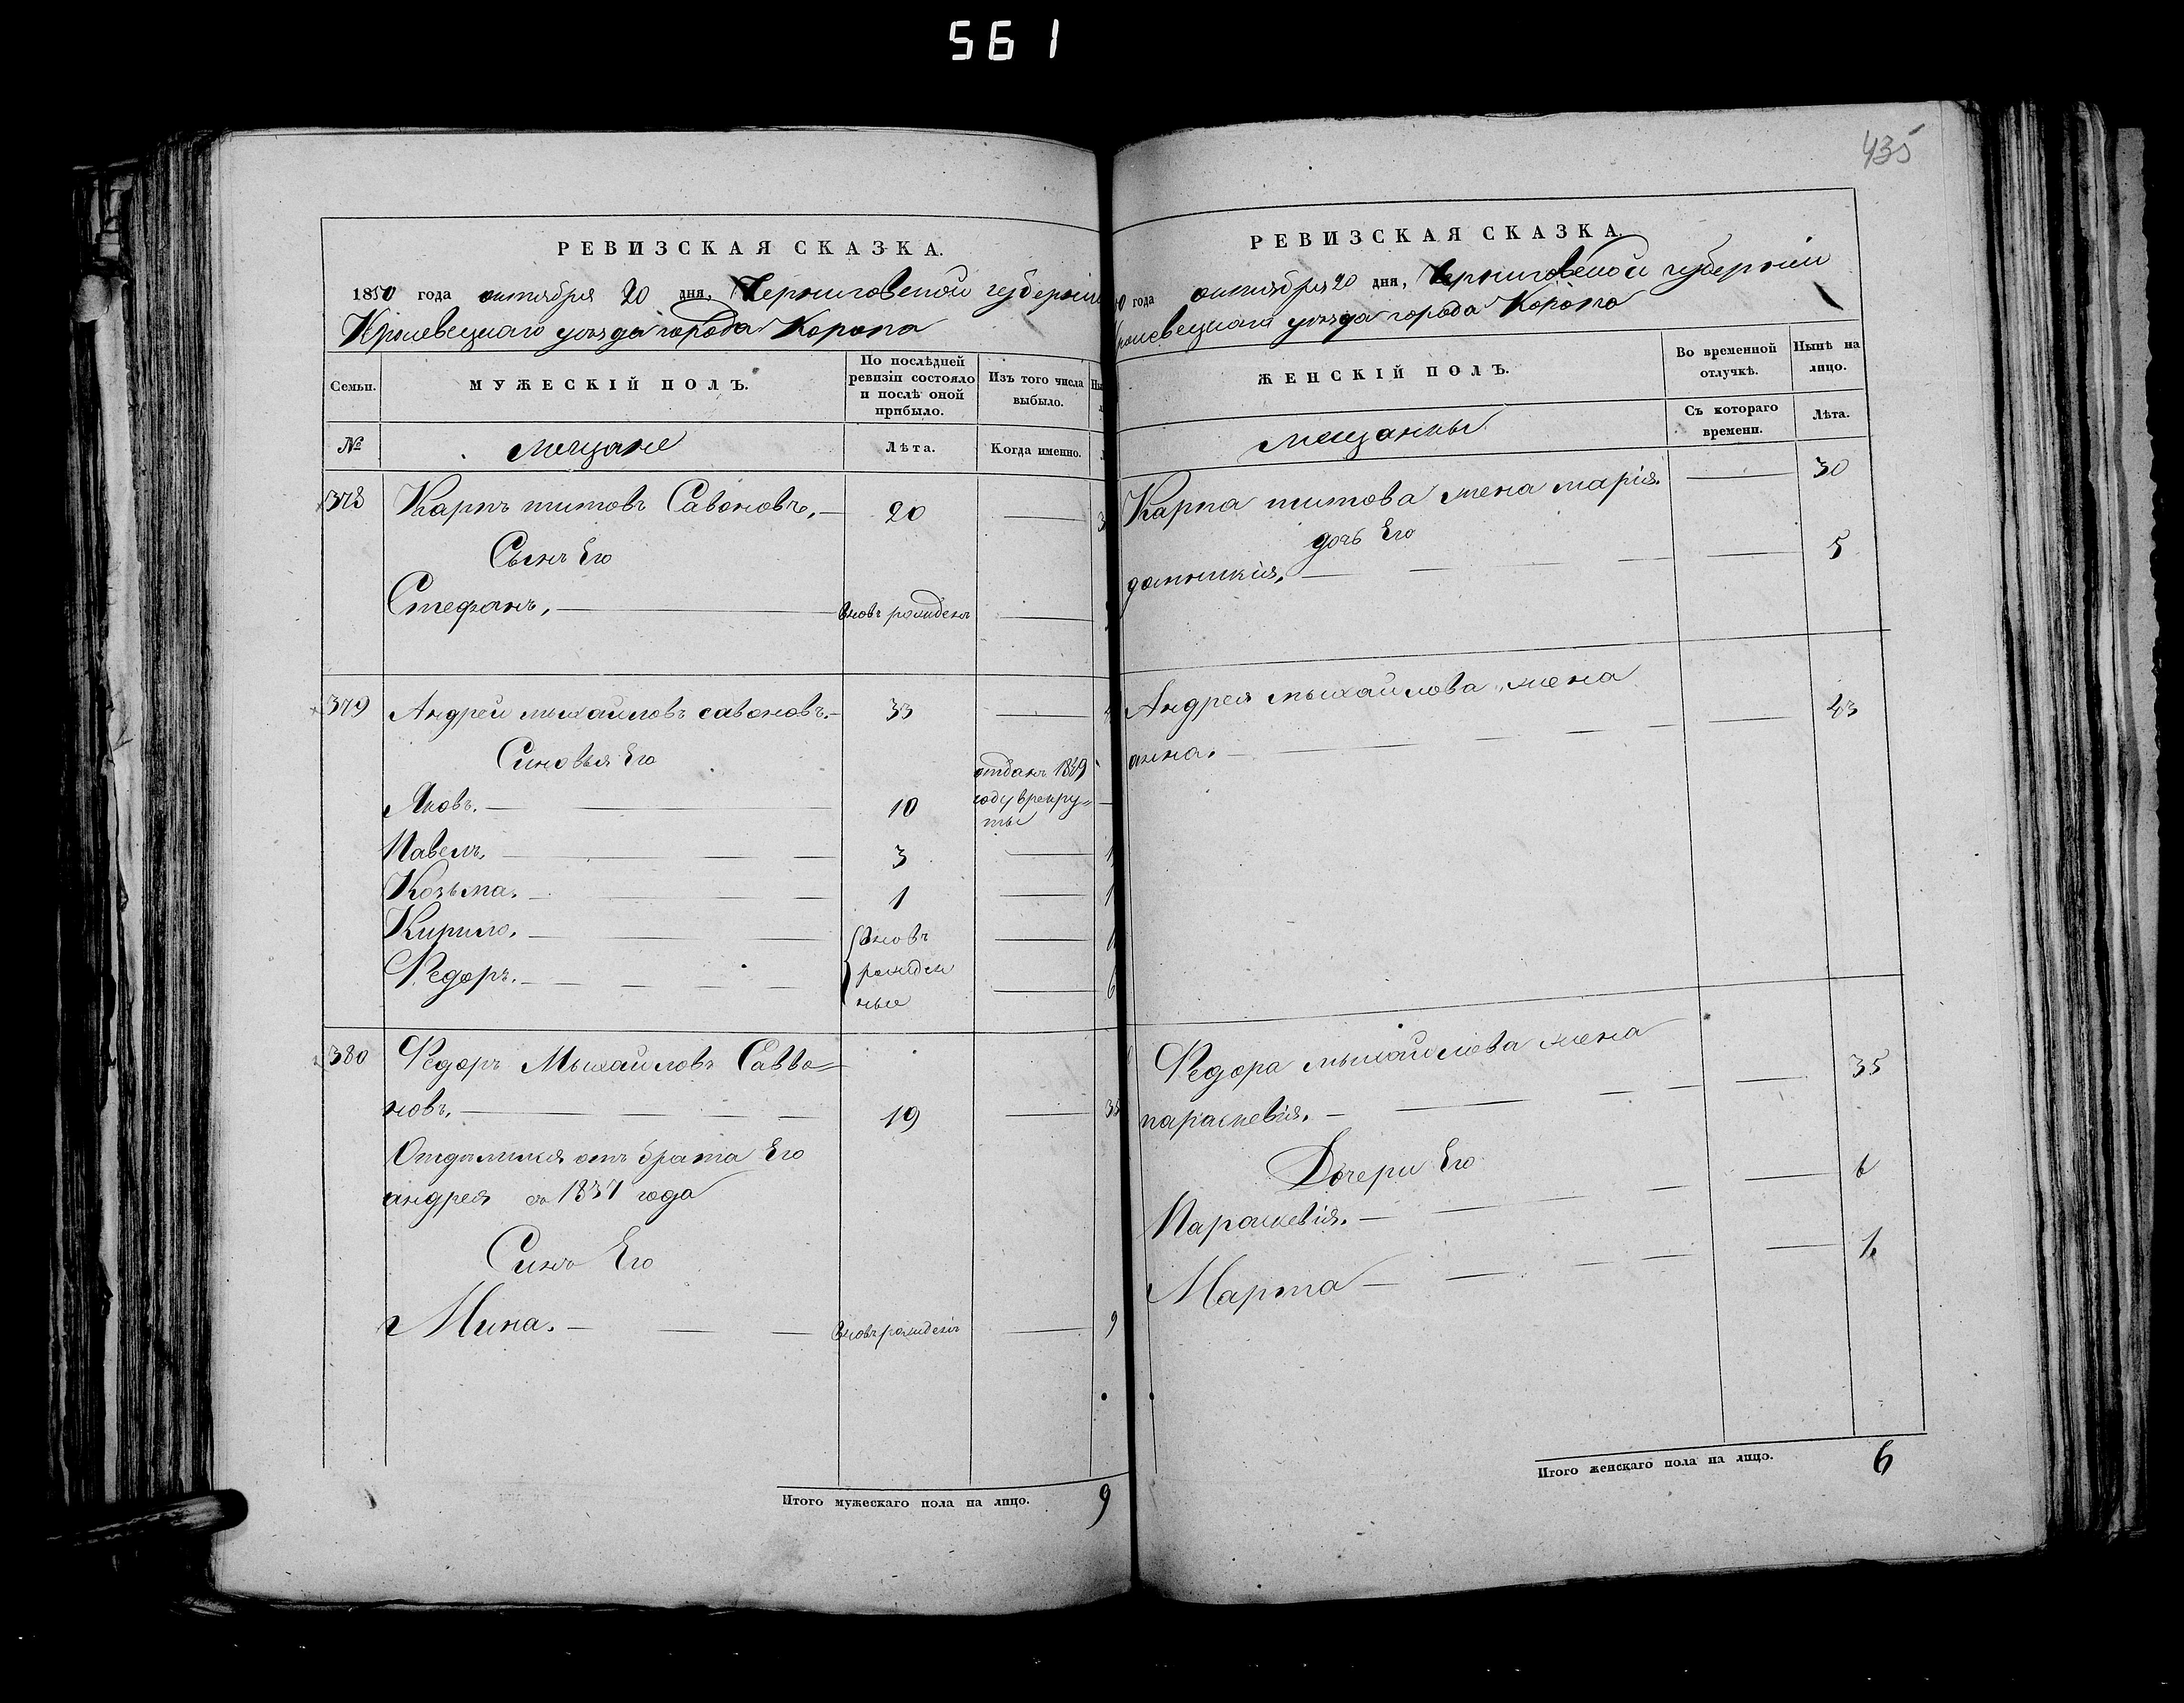 561
435
РЕВИЗСКАЯ СКАЗКА.
1850 года октября 20 дня, Черниговской губернии
Кролевецкаго уезда города Коропа
Семьи.
МУЖЕСКІЙ ПОЛЪ.
По послѣдней ревизіи состояло и послѣ оной прибыло.
Изъ того числа выбыло.
№
мещане
Лѣта.
Когда именно.
378 Карпъ титовъ Савоновъ, — 20 —
Сынъ Его
Стефанъ, — вновь рожденъ —
379 Андрей мыхайловъ савоновъ. — 33 —
Синовья Его
Яковъ. — 10 отданъ 1849 году врекру= ты —
Павелъ. — 3 —
Козьма. — 1 —
Кирило. — вновь —
Федоръ. — рожден ные — 6
380 Федоръ Мыхайловъ Савво=
новъ. — 19 —
Отделился отъ брата Его
андрея съ 1837 года
Синъ Его
Мина. — вновь рожденъ — 9
Итого мужескаго пола на лицо. 9
РЕВИЗСКАЯ СКАЗКА.
0 года октября 20 дня, Черниговской губернии
ролевецкаго уезда города Коропа
ЖЕНСКІЙ ПОЛЪ.
Во временной отлучкѣ.
Нынѣ на лицо.
мещанкы
Съ котораго времени.
Лѣта.
Карпа титова жена марія. — 30
дочь Его
домникія. — 5
Андрея мыхайлова жена
анна. — 43
Федора мыхайлова жена
параскевія. — 35
Дочери Его
Параскевія. — 6
Марта — 1
Итого женскаго пола на лицо. 6